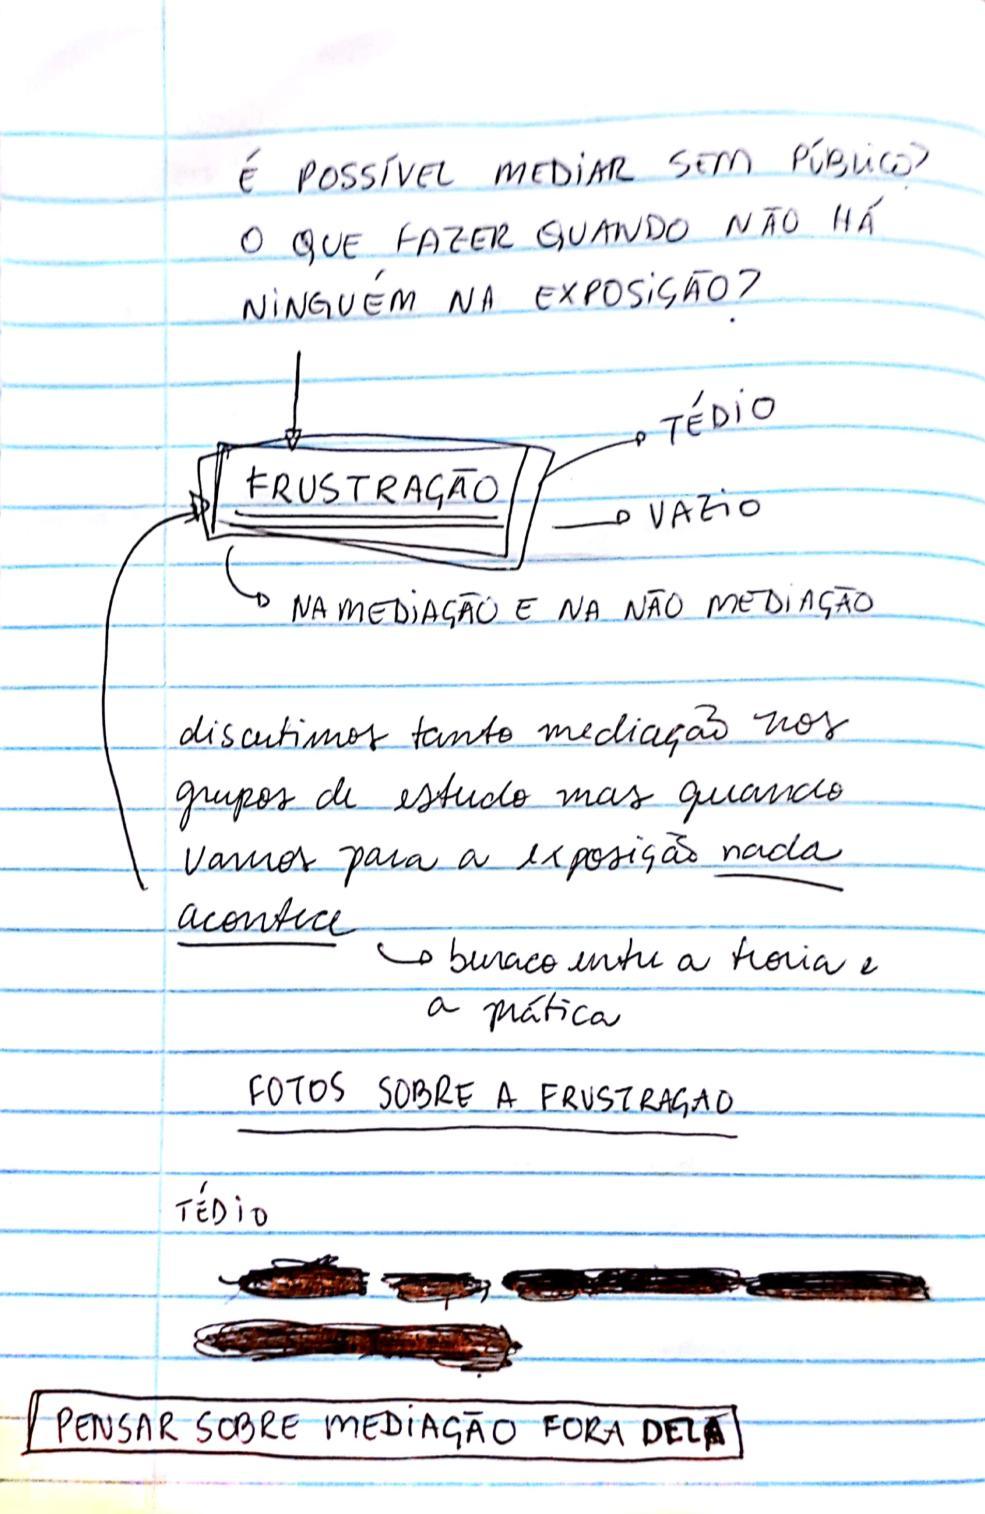 É POSSÍVEL MEDIAR SEM PÚBLICO?
O QUE FAZER QUANDO NÃO HÁ
NINGUÉM NA EXPOSIÇÃO?
TÉDIO
FRUSTRAÇÃO
VAZIO
NA MEDIAÇÃO E NA NÃO MEDIAÇÃO
discutimos tanto mediação nos
grupos de estudo mas quando
vamos para a exposição nada
acontece
buraco entre a teoria e
a prática
FOTOS SOBRE A FRUSTRAÇAO
TÉDIO
PENSAR SOBRE MEDIAÇÃO FORA DELA